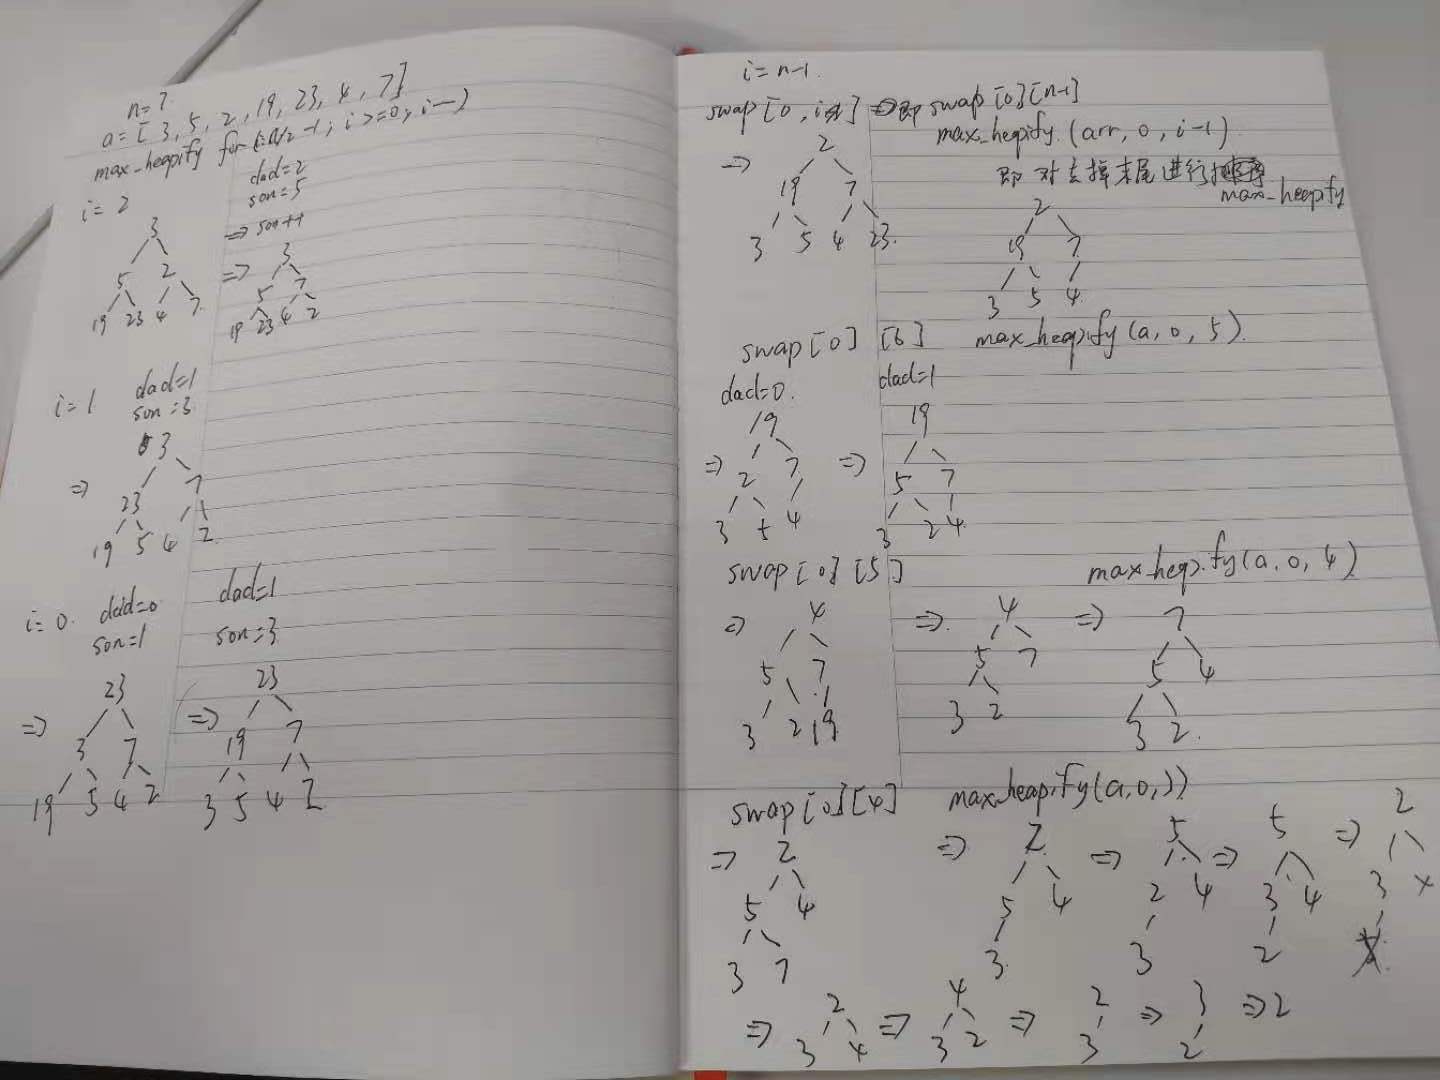 n=7
a=[3, 5, 2, 19, 23, 4, 7]
max_heapify for(i=n/2-1; i>=0; i--)
i=2
dad=2
son=5
⇒ son++
3
5 2
19 23 4 7
⇒
3
5 7
19 23 4 2
i=1 dad=1
son=3
3
⇒
23 7
19 5 4 2
i=0. dad=0
son=1
dad=1
son=3
23
⇒ 3 7
19 5 4 2
23
⇒ 19 7
3 5 4 2
i=n-1.
swap[0, i] ⇒即 swap[0][n-1]
max_hepify.(arr, 0, i-1)
即对去掉末尾进行
max_heapify
⇒ 2
19 7
3 5 4 23.
2
19 7
3 5 4
swap[0] [6] max_heapify(a, 0, 5).
dad=0.
19
⇒ 2 7
3 5 4
dad=1
19
⇒ 5 7
3 2 4
swap[0][5] max_heapify(a, 0, 4)
⇒ 4
5 7
3 2 19
⇒ 4
5 7
3 2
⇒ 7
5 4
3 2.
swap[0][4] max_heapify(a,0,3)
⇒ 2
5 4
3 7
⇒ 2
5 4
3
⇒ 5
2 4
3
⇒ 5
3 4
2
⇒ 2
3 4
⇒ 2
3 4
⇒ 4
3 2
⇒ 2
3
⇒ 3
2
⇒ 2